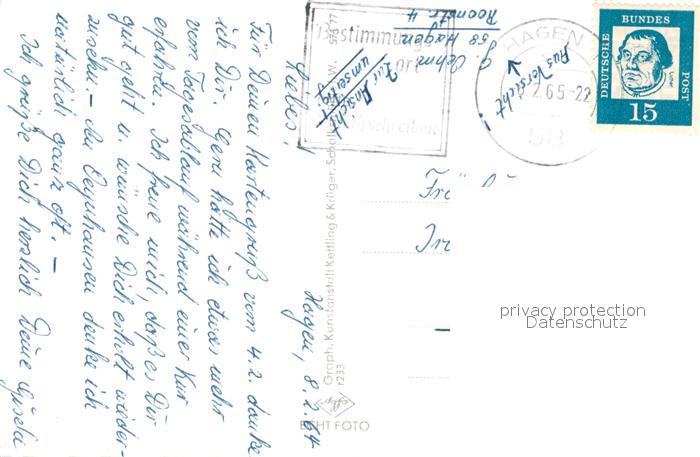 Hagen, 8.2.64
Liebes!
Für Deinen Kartengruß vom 4.2. danke
ich Dir. Gern hätte ich etwas mehr
vom Tagesablauf während einer Kur
erfahren. Ich freue mich, daß es Dir
gut geht u. wünsche Dich erholt wieder-
zusehn. – An Oeynhausen denke ich
natürlich ganz oft. –
Ich grüße Dich herzlich Deine Gisela
Zur Ansicht
umseitig
Oehm
58 Hagen
Roonstr. 4
Bestimmungs
ort
schreiben
HAGEN
2.65-22
58
Aus Versicht!
DEUTSCHE
BUNDES
POST
15
Frl
In
Graph. Kunstanstalt Kettling & Krüger, Schalksmühle
r233
ECHT FOTO
privacy protection
Datenschutz